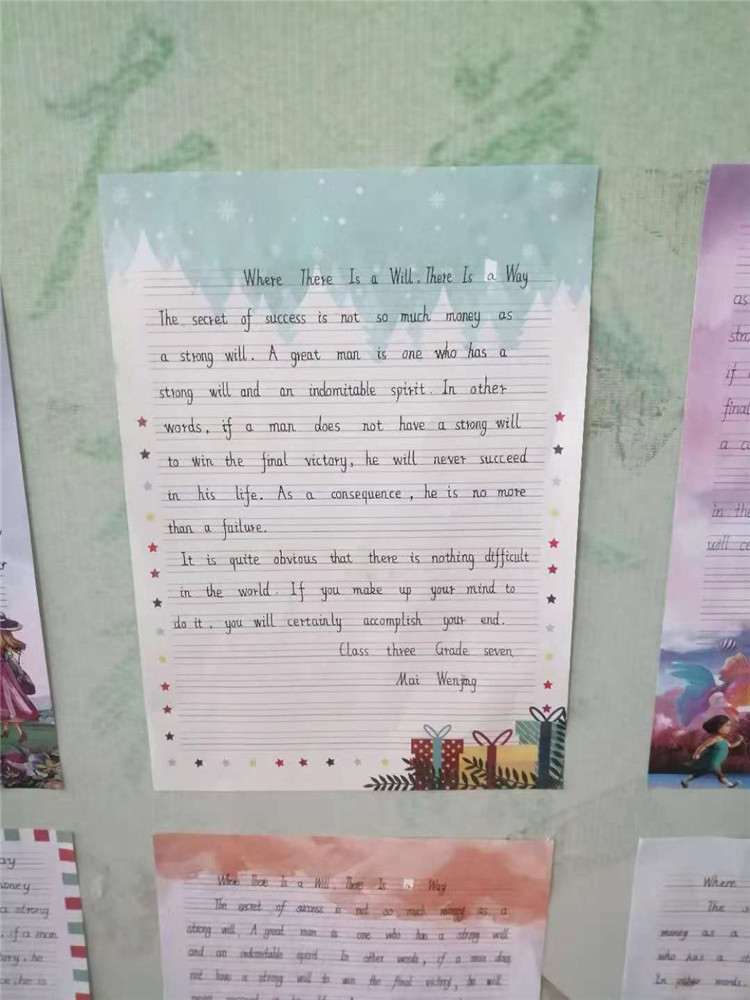 Where There Is a Will, There Is a Way
The secret of success is not so much money as
a strong will. A great man is one who has a
strong will and an indomitable spirit. In other
words, if a man does not have a strong will
to win the final victory, he will never succeed
in his life. As a consequence, he is no more
than a failure.
It is quite obvious that there is nothing difficult
in the world. If you make up your mind to
do it, you will certainly accomplish your end.
Class three Grade seven
Mai Wenjing
as
if
final
a
in the
will ce
ay
money
a strong
, if a man
tory, he
ce, he is
Where There Is a Will, There Is a Way
The secret of success is not so much money as a
strong will. A great man is one who has a strong will
and an indomitable spirit. In other words, if a man does
not have a strong will to win the final victory, he will
Where
The
money as a
who has a
In other words